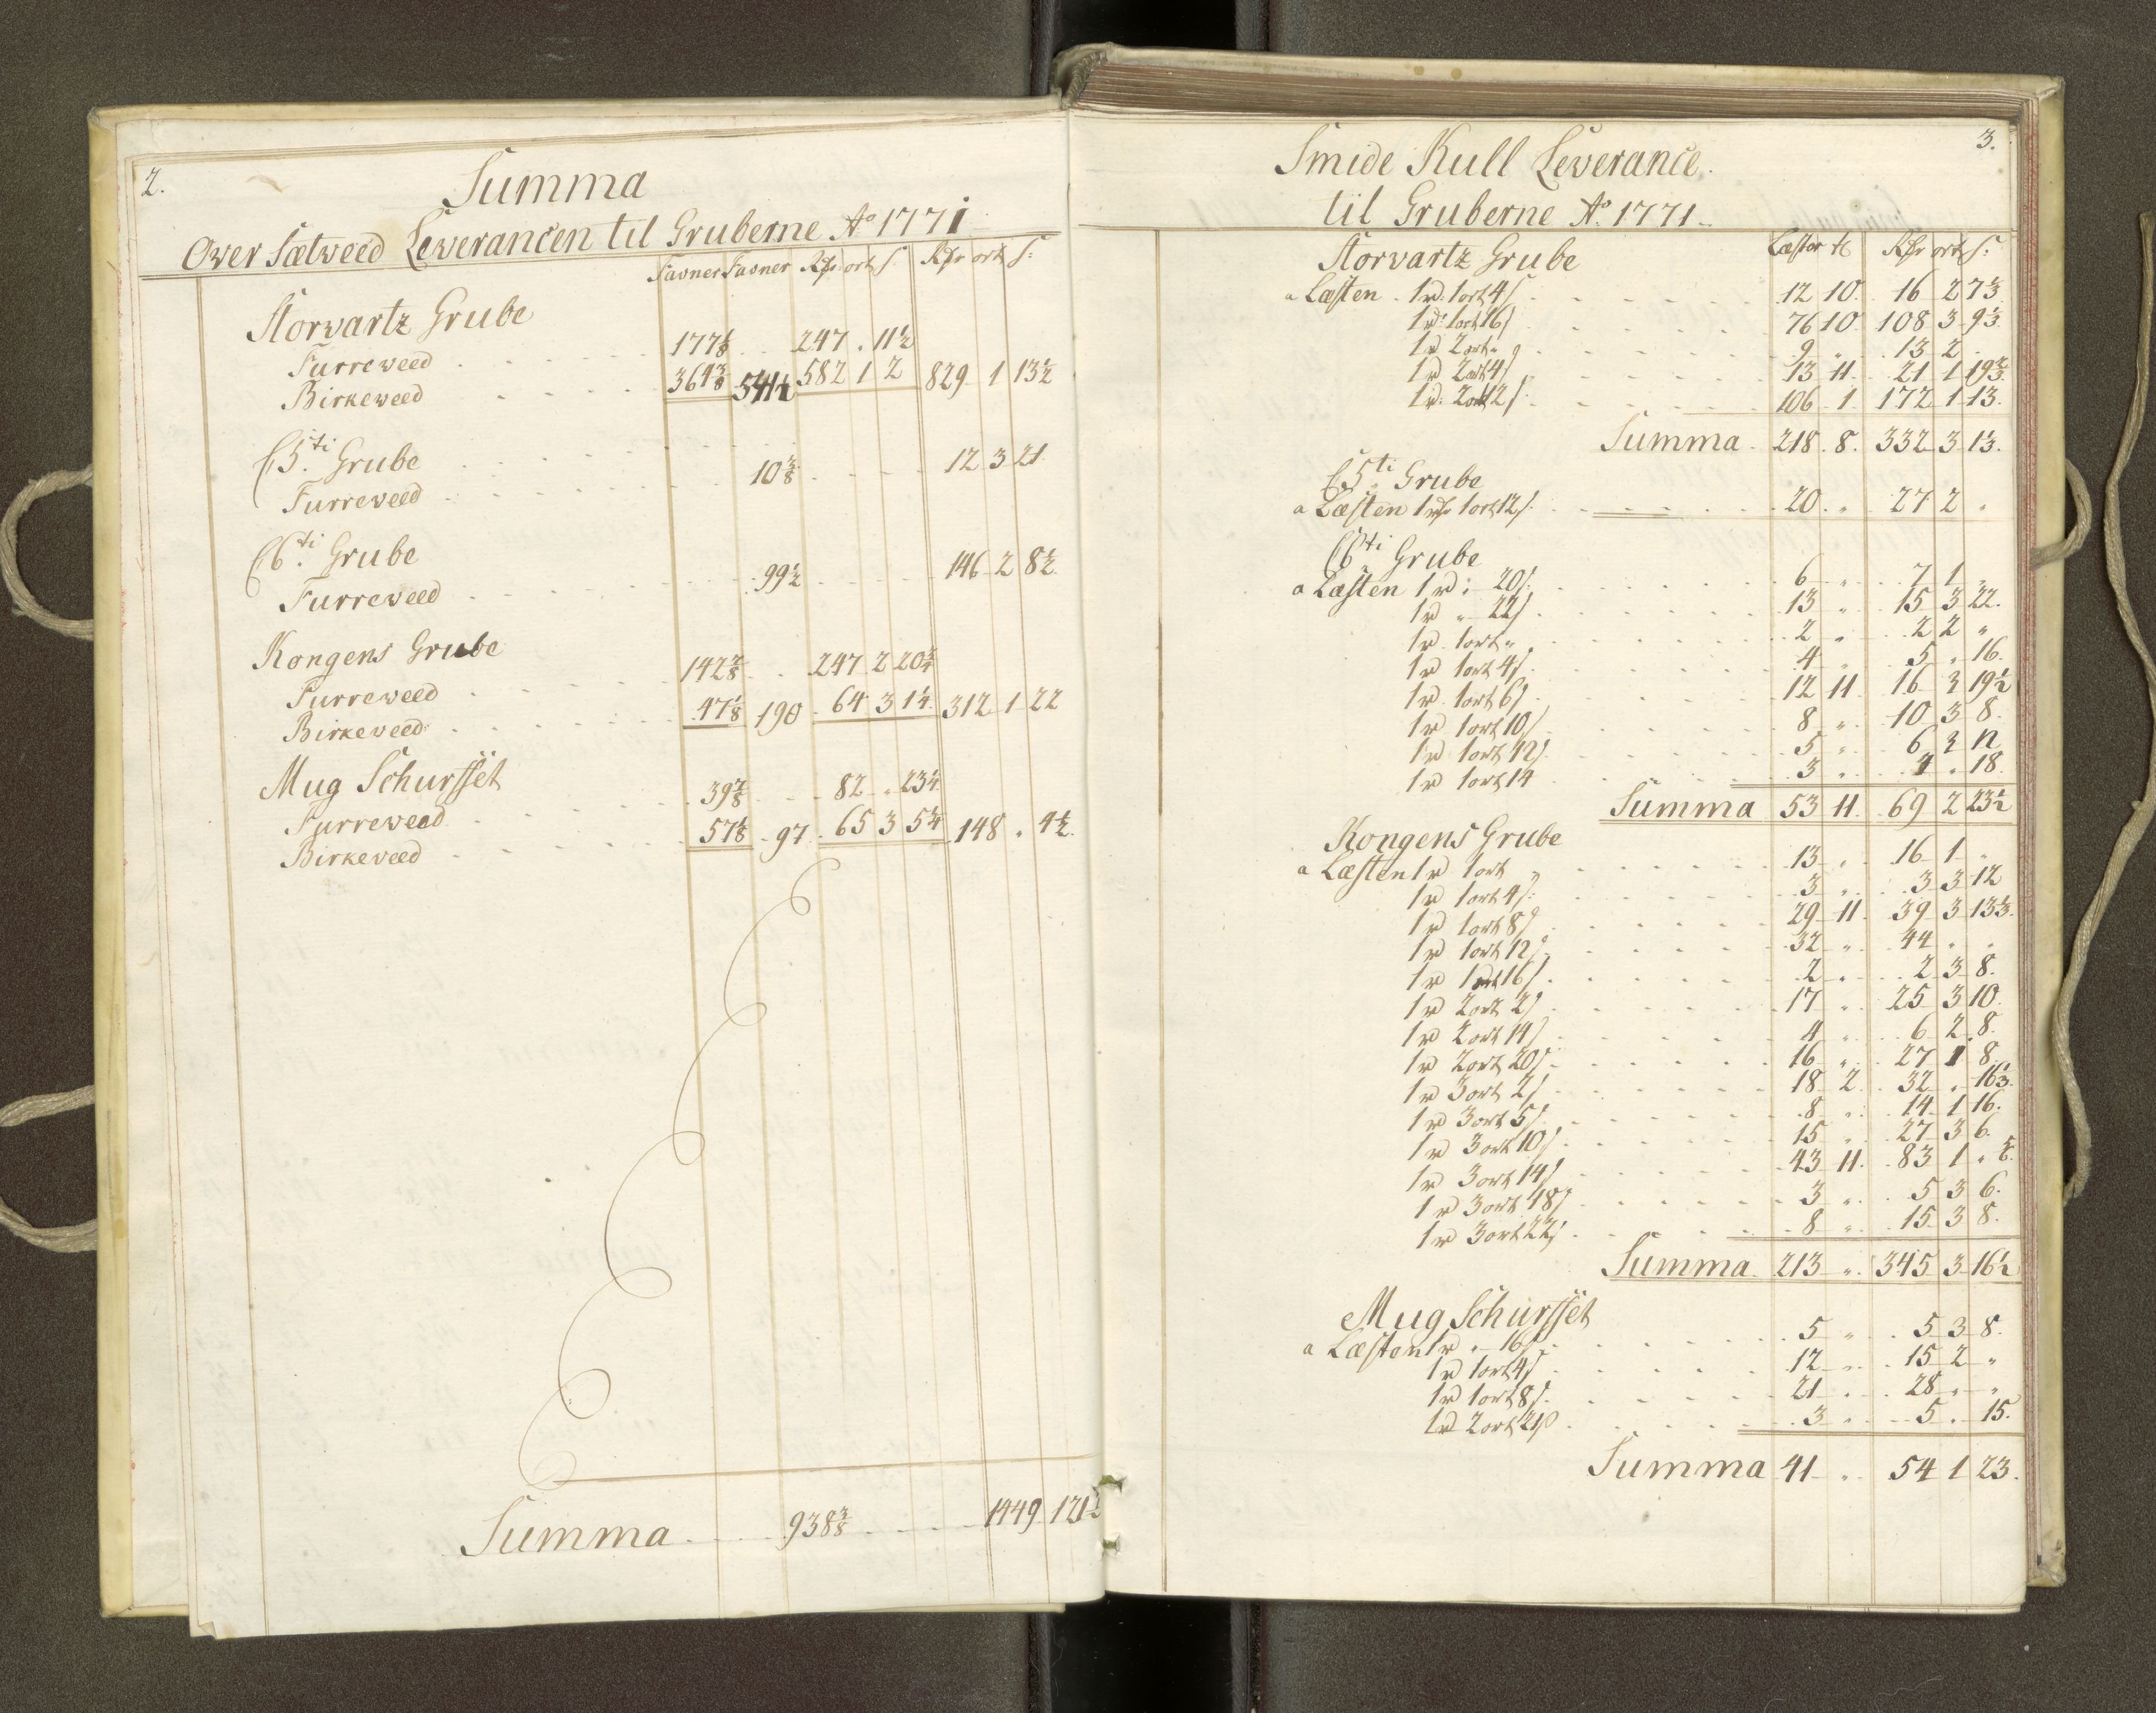 2.
Summa
Over Sætweed Leverancen til Gruberne Ao 1771
Favner Favner Rdr ort s Rdr ort s:
Storvartz Grube
Furreweed 177 1/8 247 . 11 1/2
Birkeweed 364 3/8 541 1/2 582 1 2 829 1 13 1/2
C 5.ti Grube
Furreweed 10 3/8 12 3 21
C 6.ti Grube
Furreweed 99 1/2 146 2 8 1/2
Kongens Grube
Furreweed 142 7/8 247 2 20 3/4
Birkeweed 47 1/8 190 64 3 1 1/4 312 1 22
Mug Schurffet
Furreweed 39 7/8 82 „ 23 1/4
Birkeweed 57 1/8 97 65 3 5 1/4 148 „ 4 1/2
Summa 938 3/8 1449 1 21 1/2
3.
Smide Kull Leverance
til Gruberne Ao 1771
Storvartz Grube Læster tr Rdr ort s:
a Læsten 1 rd: 1 ort 4 s 12 10 16 2 7 1/3
1 rd: 1 ort 16 s 76 10 108 3 9 1/3
1 rd 2 ort „ 9 „ 13 2 „
1 rd 2 ort 4 s 13 11 21 1 19 2/3
1 rd: 2 ort 12 s 106 1 172 1 13
Summa 218 8 332 3 1 1/3
C 5ti Grube
a Læsten 1 rdr 1 ort 12 s: 20 „ 27 2 „
C 6ti Grube
a Læsten 1 rd: 20 s: 6 „ 7 1 „
1 rd „ 22 s 13 „ 15 3 22
1 rd 1 ort „ 2 „ 2 2 „
1 rd 1 ort 4 s 4 „ 5 „ 16
1 rd 1 ort 6 s 12 11 16 3 19 1/2
1 rd 1 ort 10 s 8 „ 10 3 8
1 rd 1 ort 12 s 5 „ 6 3 12
1 rd 1 ort 14 3 „ 4 „ 18
Summa 53 11 69 2 23 1/2
Kongens Grube
a Læsten 1 rd 1 ort „ 13 „ 16 1 „
1 rd 1 ort 4 s: 3 „ 3 3 12
1 rd 1 ort 8 s 29 11 39 3 13 1/3
1 rd 1 ort 12 s 32 „ 44 „ „
1 rd 1 ort 16 s 2 „ 2 3 8
1 rd 2 ort 2 s 17 „ 25 3 10
1 rd 2 ort 14 s 4 „ 6 2 8
1 rd 2 ort 20 s 16 „ 27 1 8
1 rd 3 ort 2 s 18 2 32 „ 16 1/3
1 rd 3 ort 5 s 8 „ 14 1 16
1 rd 3 ort 10 s 15 „ 27 3 6
1 rd 3 ort 14 s 43 11 83 1 „ 5/6
1 rd 3 ort 18 s 3 „ 5 3 6
1 rd 3 ort 22 s 8 „ 15 3 8
Summa 213 „ 345 3 16 1/2
Mug Schurffet
a Læsten 1 rd „ 16 s 5 „ 5 3 8
1 rd 1 ort 4 s 12 „ 15 2 „
1 rd 1 ort 8 s 21 „ 28 „ „
1 rd 2 ort 21 s 3 „ 5 „ 15
Summa 41 „ 54 1 23